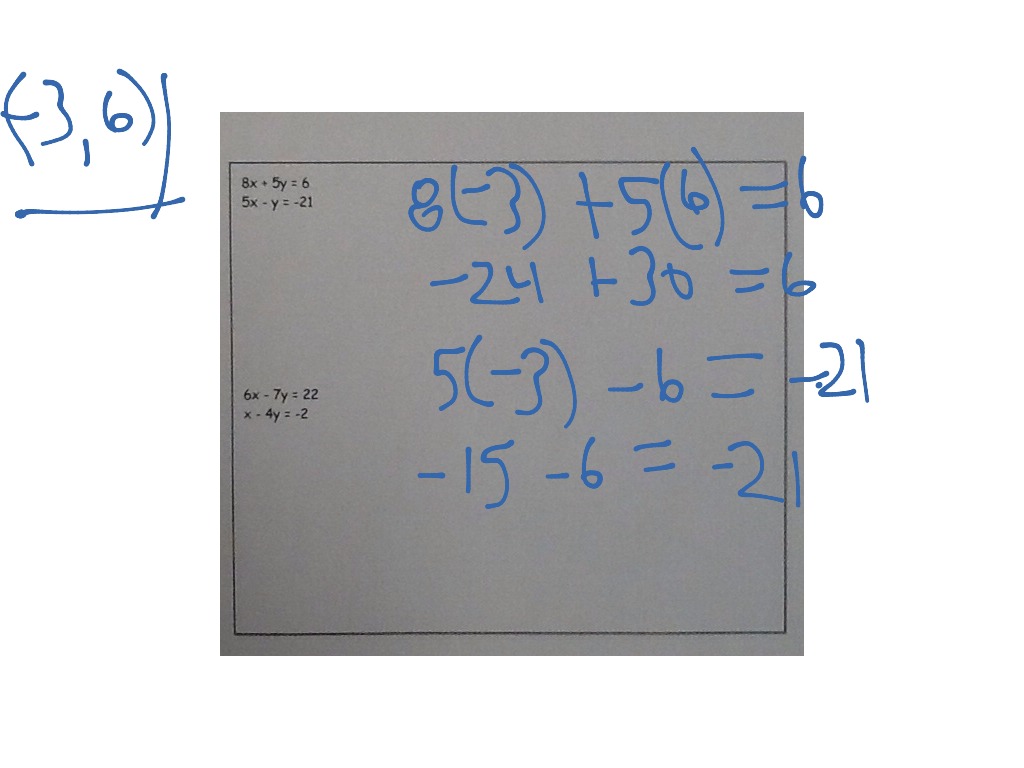 (-3, 6)
8x + 5y = 6
5x - y = -21
8(-3) + 5(6) = 6
-24 + 30 = 6
5(-3) - 6 = -21
-15 - 6 = -21
6x - 7y = 22
x - 4y = -2